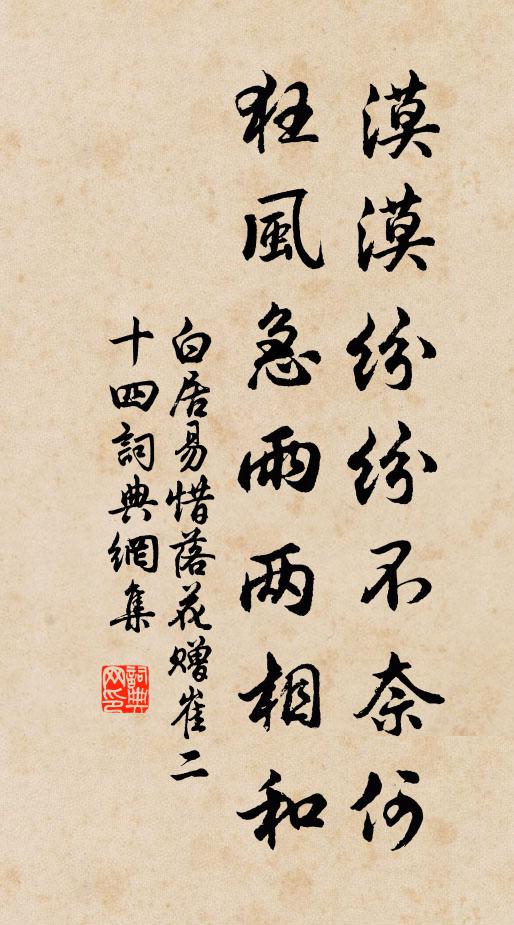 漠漠紛紛不奈何
狂風急雨兩相和
白居易惜落花贈崔二
十四詞典網集
詞典
网印